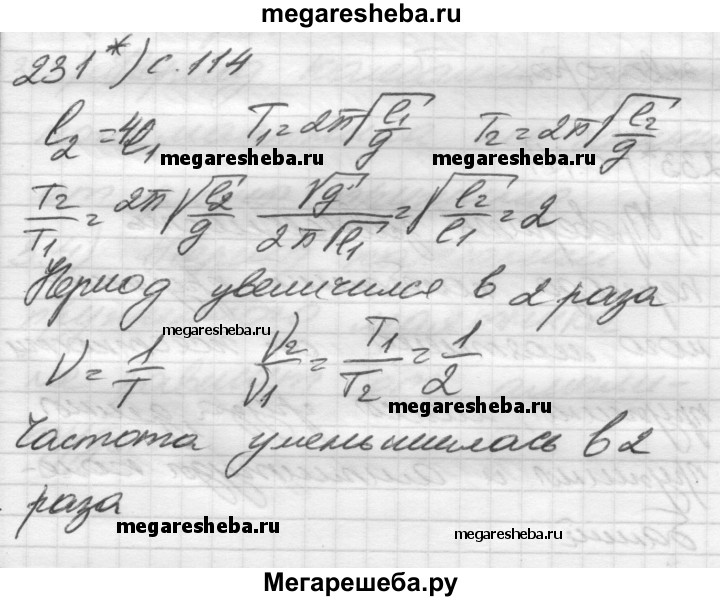 megaresheba.ru
231*) с. 114
l₂ = 4l₁ T₁ = 2π√(l₁/g) T₂ = 2π√(l₂/g)
megaresheba.ru megaresheba.ru
T₂/T₁ = 2π√(l₂/g) √g/(2π√l₁) = √(l₂/l₁) = 2
Период увеличился в 2 раза
megaresheba.ru
ν = 1/T ν₂/ν₁ = T₁/T₂ = 1/2
megaresheba.ru
Частота уменьшилась в 2
раза
megaresheba.ru megaresheba.ru
Мегарешеба.ру